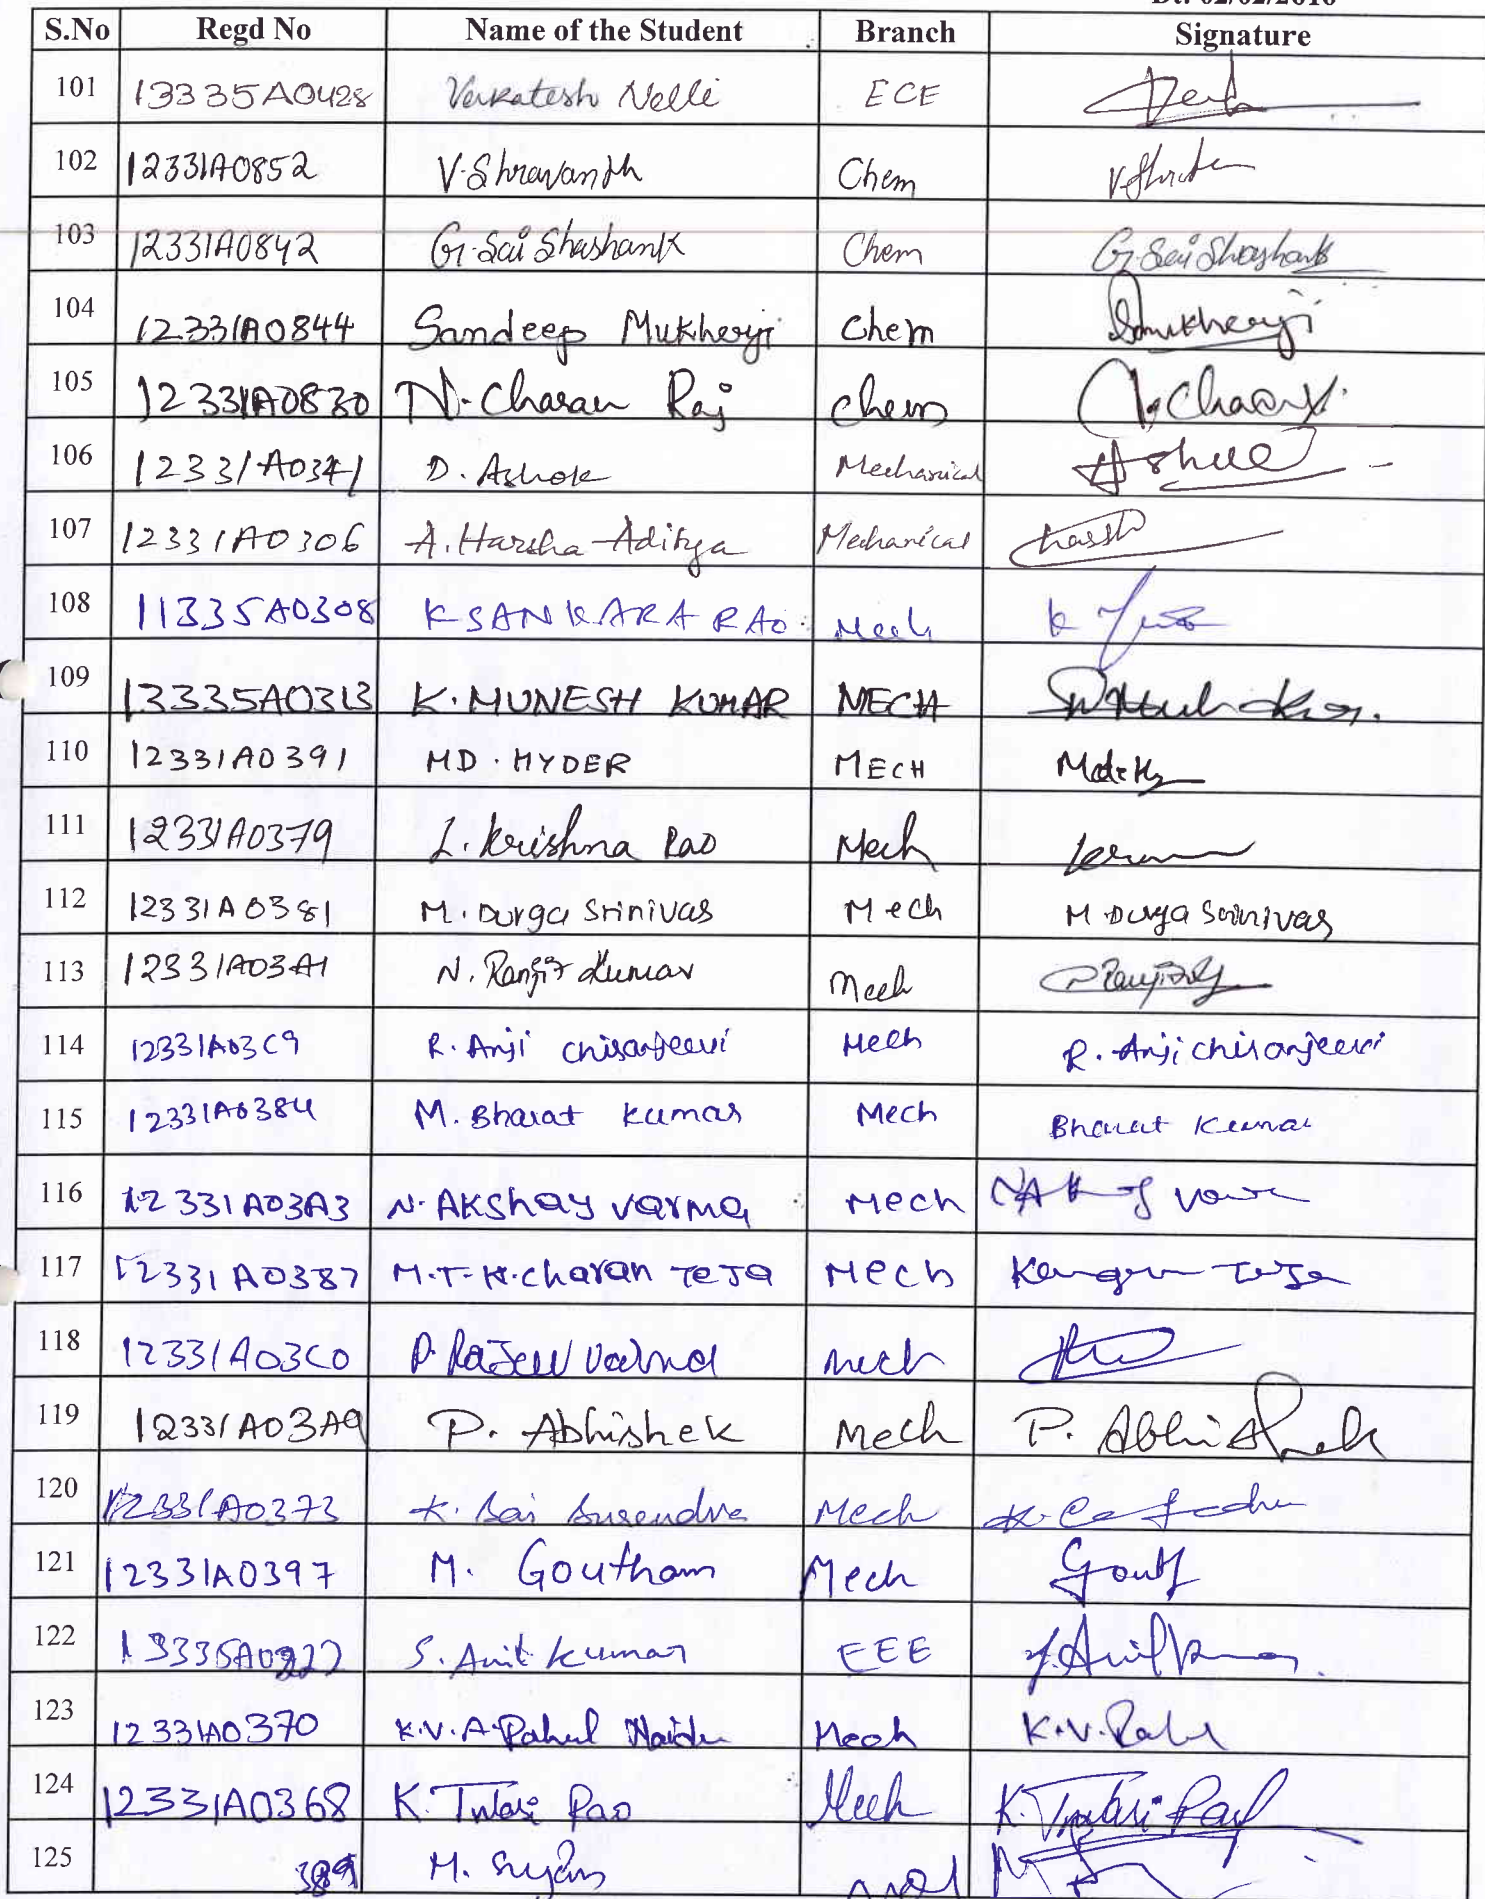 S.No Regd No Name of the Student Branch Signature
101 13335A0428 Venkatesh Nelli ECE
102 12331A0852 V. Shravanth Chem
103 12331A0842 G. Sai Shashank Chem G. Sai Shashank
104 12331A0844 Sandeep Mukherji Chem SMukherji
105 12331A0830 N. Charan Raj chem
106 12331A0341 D. Ashok Mechanical
107 12331A0306 A. Harsha Aditya Mechanical
108 11335A0308 K SANKARA RAO Mech
109 13335A0313 K. MUNESH KUMAR MECH
110 12331A0391 MD. HYDER MECH
111 12331A0379 L. Krishna Rao Mech
112 12331A0381 M. Durga Srinivas Mech M Durga Srinivas
113 12331A03A1 N. Ranjit Kumar Mech
114 12331A03C9 R. Anji Chiranjeevi Mech R. Anji chiranjeevi
115 12331A0384 M. Bharat Kumar Mech Bharat Kumar
116 12331A03A3 N. AKshay varma Mech
117 12331A0387 M.T.K.charan Teja Mech Teja
118 12331A03C0 P. Rajeev Varma Mech
119 12331A03A9 P. Abhishek Mech P. Abhishek
120 12331A0373 K. Sai Surendra Mech
121 12331A0397 M. Goutham Mech
122 13335A0222 S. Anil Kumar EEE
123 12331A0370 K.V.A. Rahul Naidu Mech K.V. Rahul
124 12331A0368 K. Tulasi Rao Mech K. Tulasi Rao
125 389 M.